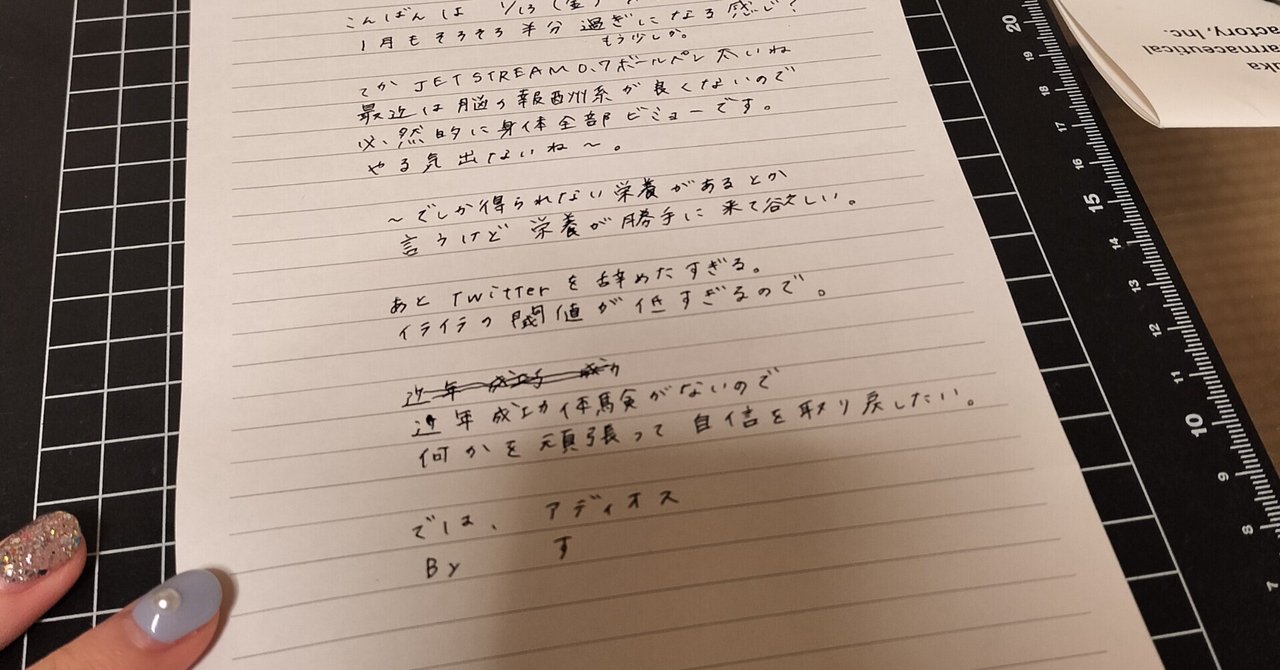 こんばんは 1/13 (金)
1月もそろそろ半分過ぎになる感じ?
もう少しか。
てか JETSTREAM0.7ボールペン太いね
最近は脳の報酬系が良くないので
必然的に身体全部ビミョーです。
やる気出ないね〜。
〜でしか得られない栄養があるとか
言うけど 栄養が勝手に来て欲しい。
あと Twitterを辞めたすぎる。
イライラの閾値が低すぎるので。
近年 成功 成功
近年成功体験がないので
何かを頑張って自信を取り戻したい。
では、 アディオス
By す
uka
armaceutical
actory, Inc.
20
19
18
17
16
15
14
13
12
11
10
9
8